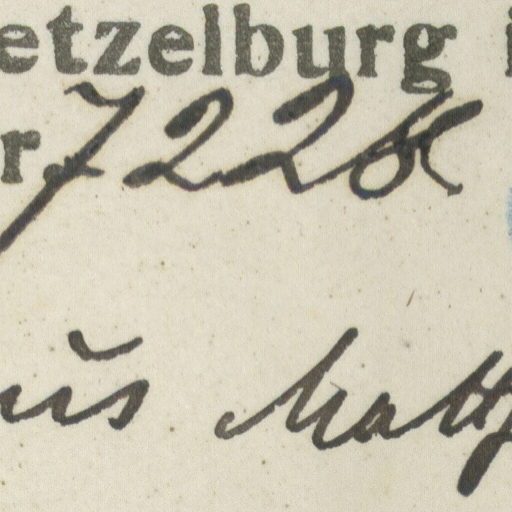 etzelburg i
r. 7228
us Matt